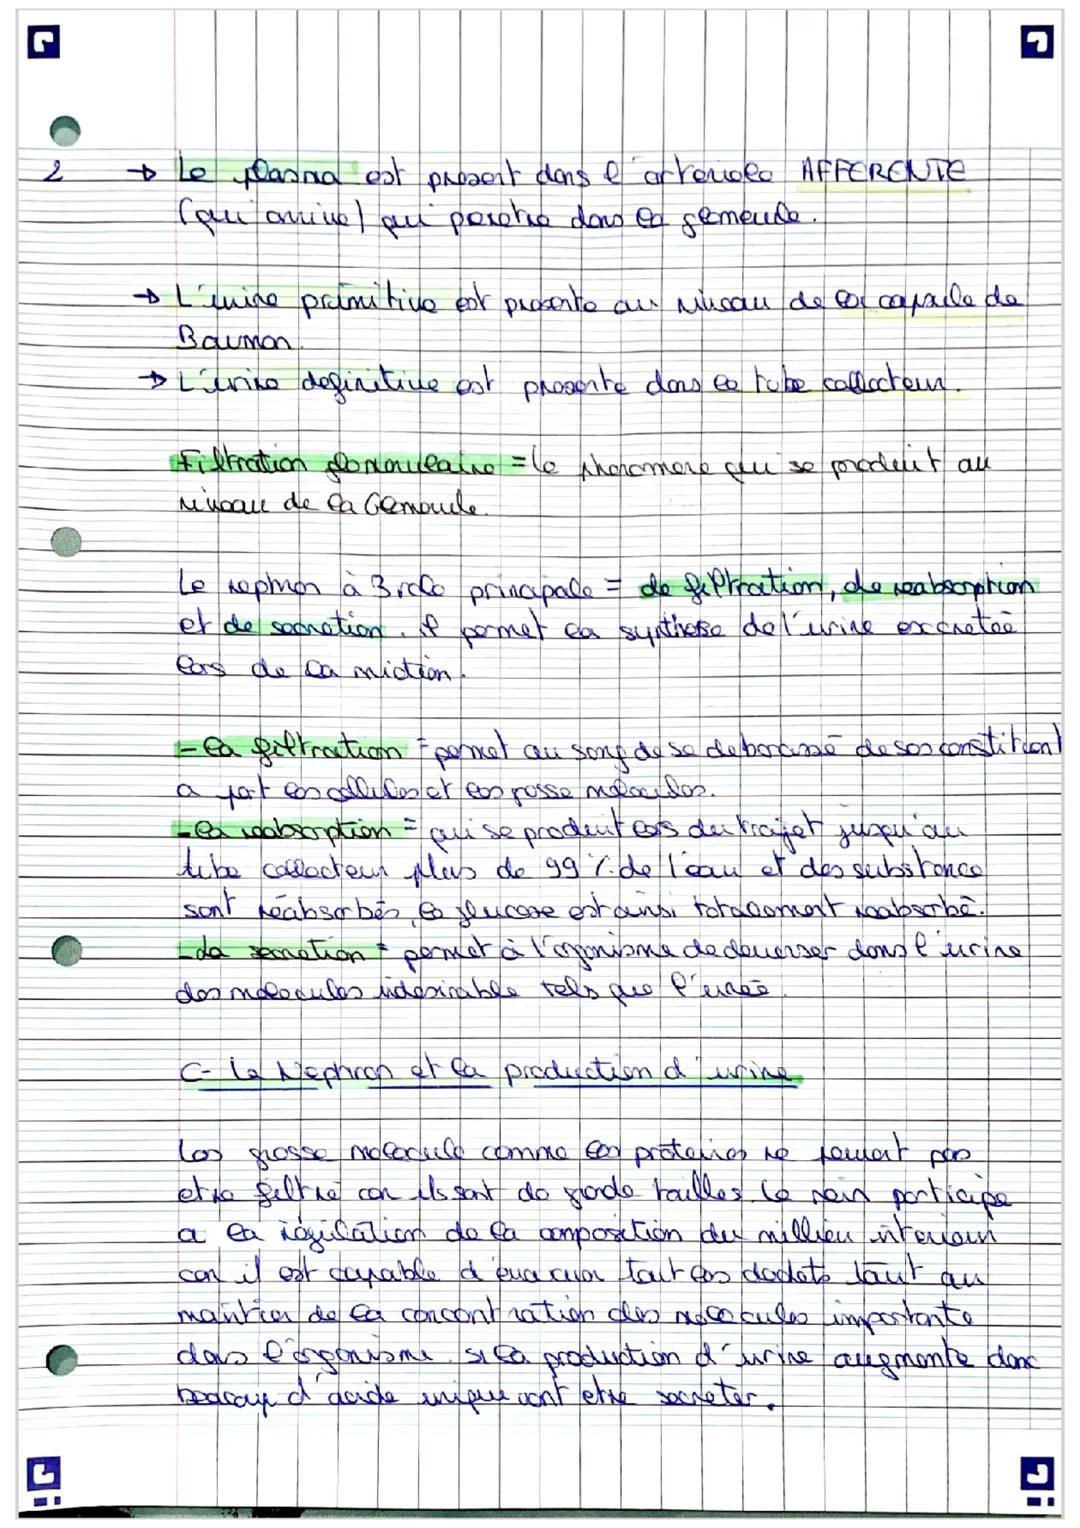 2 → Le plasma est présent dans l'arteriole AFFERENTE
(qui arrive) qui penetre dans la glomerule.
→ L'urine primitive est presente au niveau de la capsule de
Bauman.
→ L'urine definitive est presente dans le tube collecteur.
Filtration glomerulaire = le phenomene qui se produit au
niveau de la Glomerule.
Le nephron à 3 role principale = de filtration, de reabsorption
et de secretion. il permet la synthese de l'urine excretée
lors de la miction.
- la filtration = permet au sang de se debarassé de ses constituant
a part les cellules et les grosse molecules.
- la reabsorption = qui se produit lors du trajet jusqu'au
tube collecteur plus de 99 % de l'eau et des substance
sont réabsorbés, le glucose est ainsi totalement reabsorbé.
- la secretion = permet à l'organisme de deverser dans l'urine
des molecules indesirable tels que l'urée.
C- Le Nephron et la production d'urine
Les grosse molecule comme les proteines ne peuvent pas
etre filtré car ils sont de grade tailles. Le rein participe
a la régulation de la composition du millieu interieur
car il est capable d'evacuer tout les dechets tout au
maintien de la concentration des molecules importante
dans l'organisme. si la production d'urine augmente donc
beacoup d'acide urique vont etre secreter.